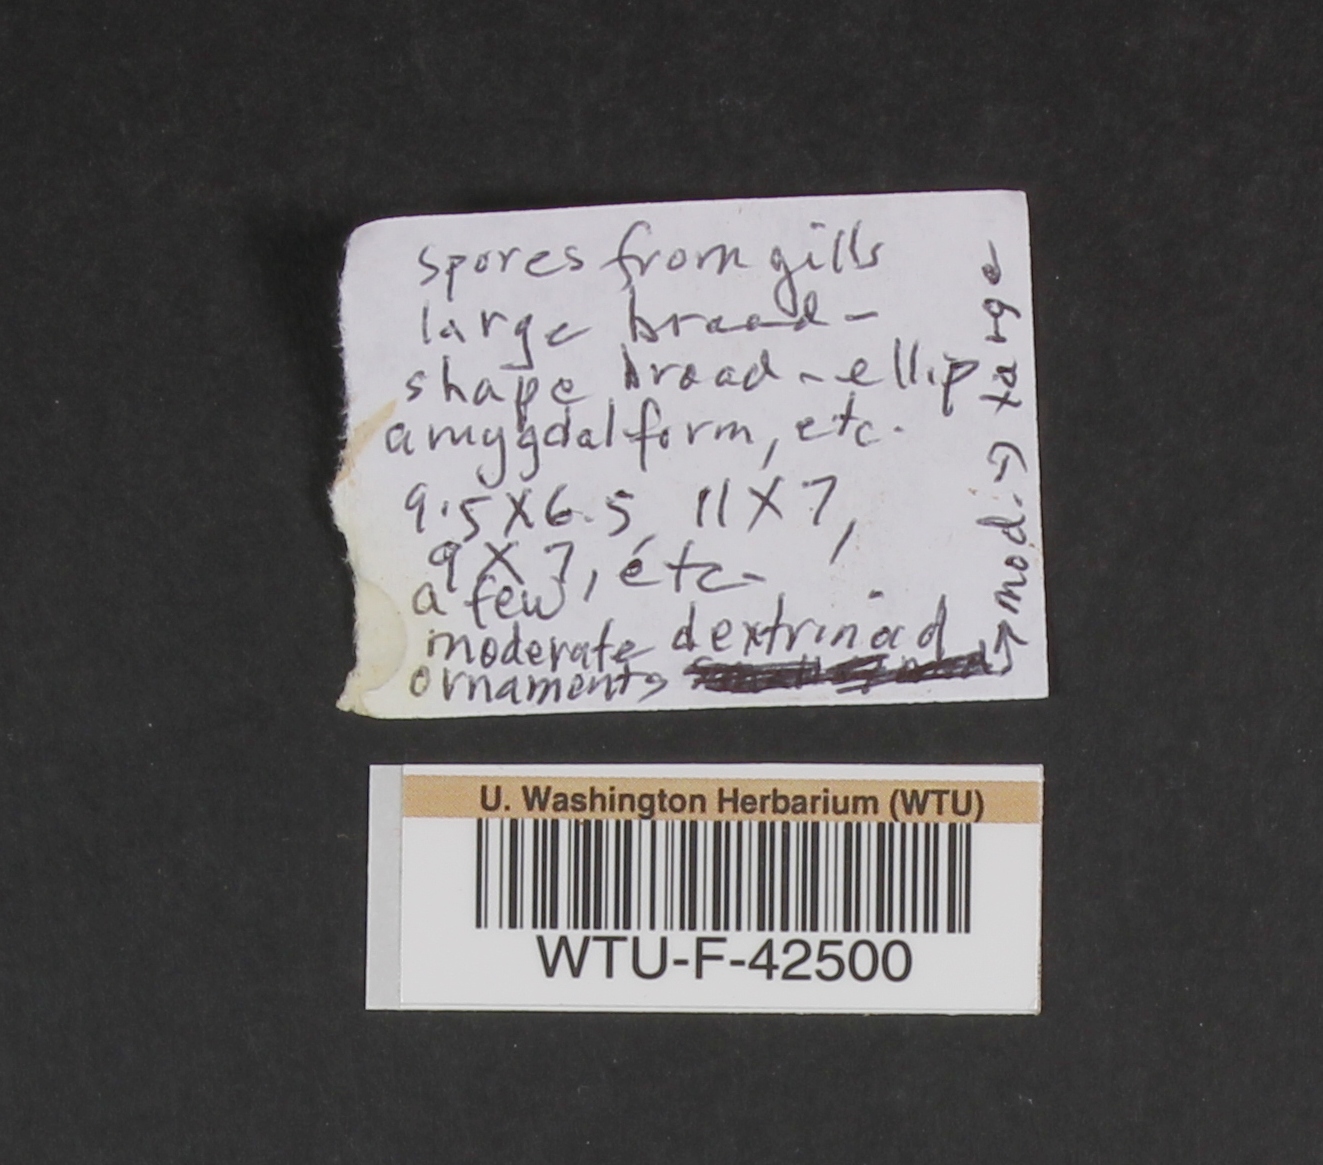 spores from gills
large broad-
shape broad-ellip
amygdalform, etc.
9.5X6.5, 11X7,
9X7, etc-
a few
moderate dextrinoid
ornaments
→ mod. → xarge
U. Washington Herbarium (WTU)
WTU-F-42500